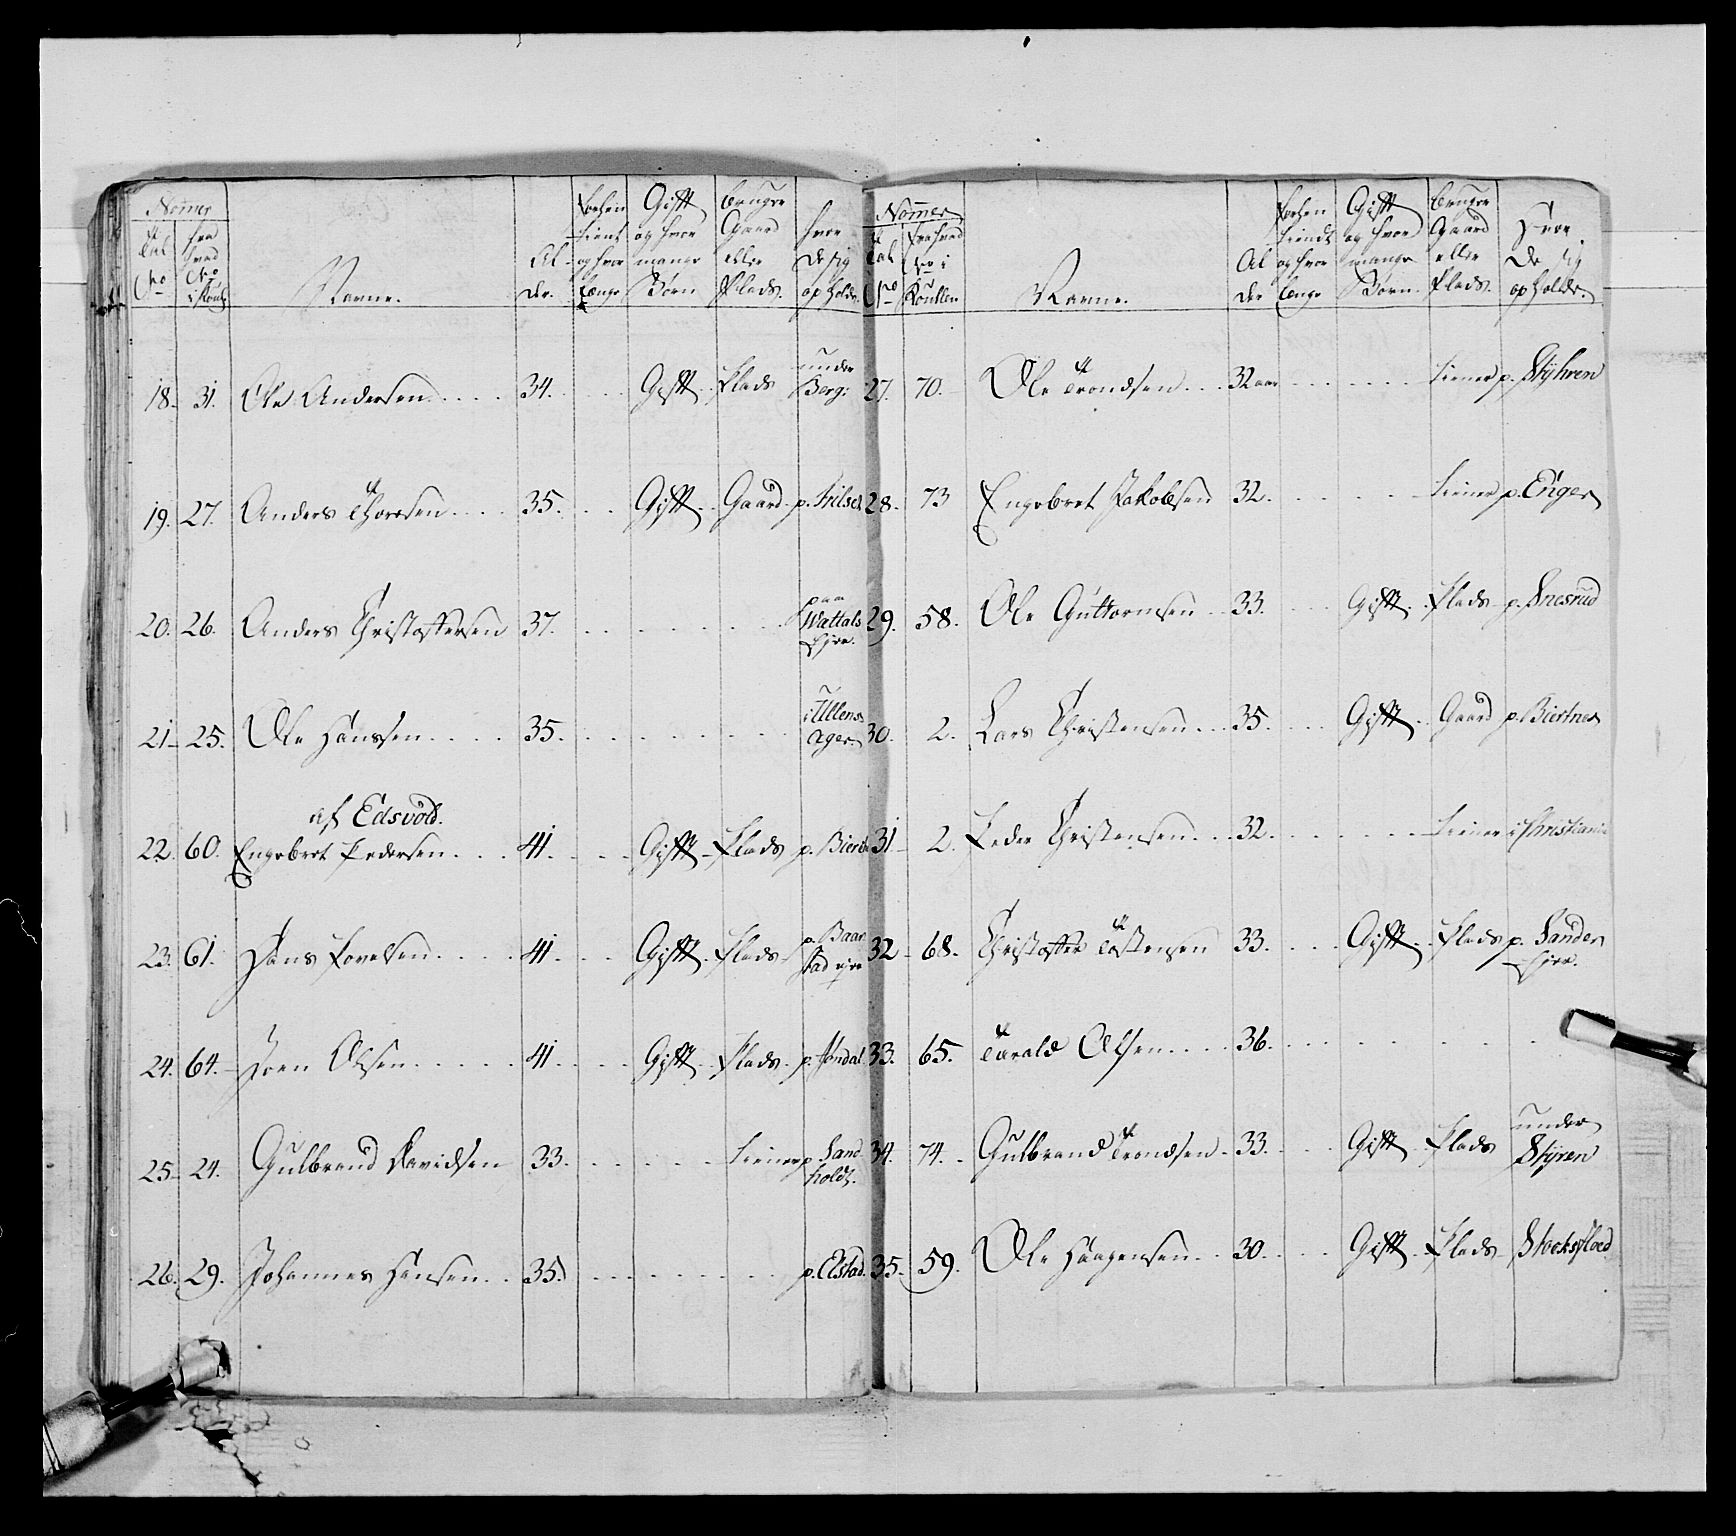 Nomer
Tal No
fra hvad No i Roul
Navne.
Alder.
og hvor længe
Gift og hvor mange Børn
bruger Gaard eller Plads.
hvor de sig opholder.
18. 31. Ole Andersen 34. Gift Plads under Berg:
19. 27. Anders Thorsen 35. Gift Gaard p.
20. 26. Anders Christoffersen 37. paa Wattals Ejer.
21. 25. Ole Hansen 35. i Ullensager
af Edsvold.
22. 60. Engebret Pedersen 41. Gift Plads p.
23. 61. Hans Povelsen 41. Gift Plads p. Baarstad ejer
24. 64. Joen Olsen 41. Gift Plads p.
25. 24. Gulbrand Davidsen 33. tiener p. Sandholdt.
26. 29. Johannes Hansen 35. p. Elstad.
Nomer
Tal No
fra hvad No i Roullen
Navne.
Alder
og hvor længe
Gift og hvor mange Børn.
bruger Gaard eller Plads.
Hvor De sig opholder.
27. 70. Ole Trondsen 32 aar tiener p. Styhren
28. 73 Engebret Jakobsen 32. tiener p. Enger
29. 58. Ole Guttormsen 33. Gift Plads p. Snesrud
30. 2. Lars Christensen 35. Gift Gaard p. Biertnes
31 2. Peder Christensen 32. tiener i Christiania
32 68. Christoffer Tostensen 33. Gift Plads p. Sanders Ejer.
33. 65. Tarald Olsen 36.
34. 74. Gulbrand Trondsen 33. Gift Plads under Styren
35. 59. Ole Haagensen 30. Gift Plads Stocksfloed